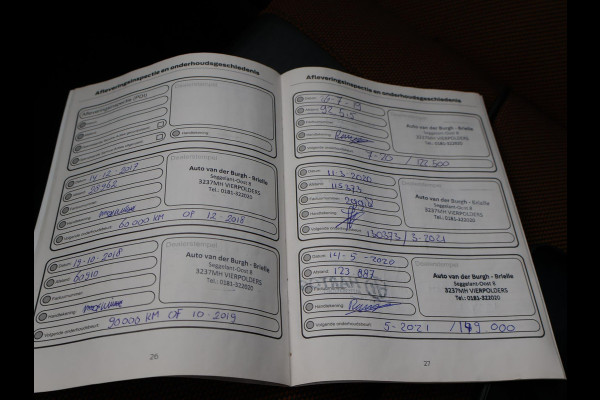 Afleveringsinspectie en onderhoudsgeschiedenis
Afleveringsinspectie (PDI)
Dealerstempel
Handtekening:
Datum: 14-12-2017
Dealerstempel
Auto van der Burgh - Brielle
Seggelant-Oost 8
3237MH VIERPOLDERS
Tel.: 0181-322020
Volgende onderhoudsbeurt: 60000 KM OF 12-2018
Datum: 19-10-2018
60910
Dealerstempel
Auto van der Burgh - Brielle
Seggelant-Oost 8
3237MH VIERPOLDERS
Tel.: 0181-322020
Handtekening:
Volgende onderhoudsbeurt: 90000 KM OF 10-2019
26
Afleveringsinspectie en onderhoudsgeschiedenis
Dealerstempel
Auto van der Burgh - Brielle
Seggelant-Oost 8
3237MH VIERPOLDERS
Tel.: 0181-322020
Handtekening:
7-20 / 122.500
Datum: 11-3-2020
113373
Dealerstempel
Auto van der Burgh - Brielle
Seggelant-Oost 8
3237MH VIERPOLDERS
Tel.: 0181-322020
Handtekening:
130373 / 3-2021
Datum: 14-5-2020
Afstand: 123 887
Dealerstempel
Auto van der Burgh - Brielle
Seggelant-Oost 8
3237MH VIERPOLDERS
Tel.: 0181-322020
Handtekening:
Volgende onderhoudsbeurt: 5-2021 / 149 000
27